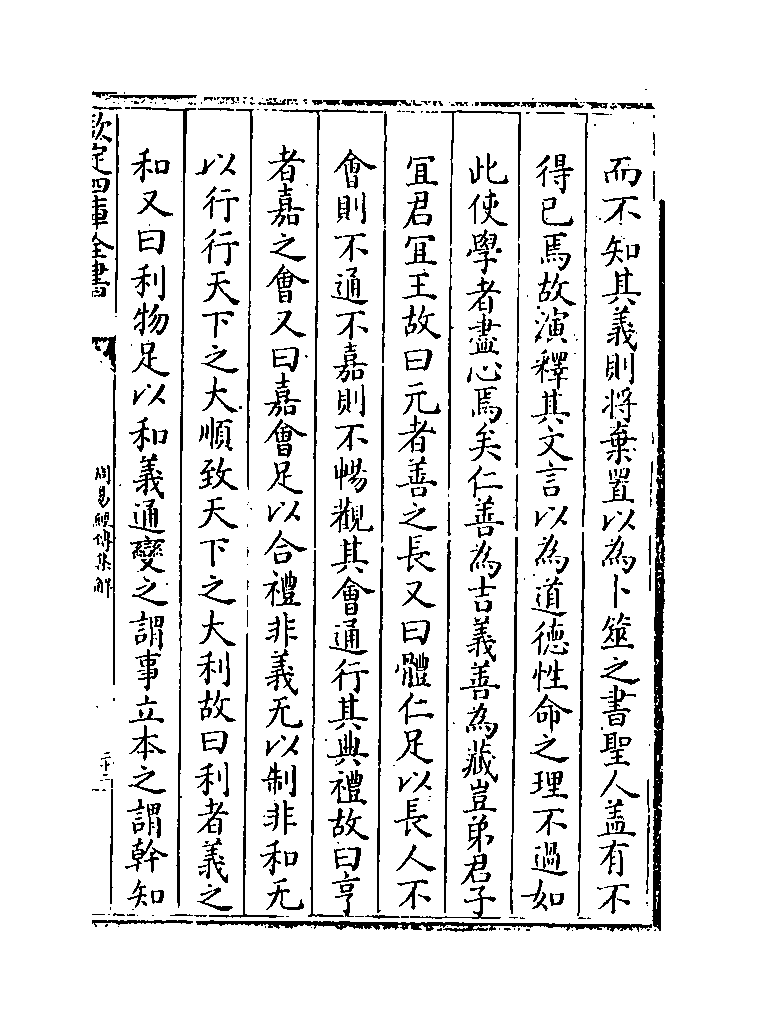 而不知其義則将棄置以為卜筮之書聖人盖有不
得已焉故演釋其文言以為道德性命之理不過如
此使學者盡心焉矣仁善為吉義善為藏豈弟君子
宜君宜王故曰元者善之長又曰體仁足以長人不
會則不通不嘉則不暢觀其會通行其典禮故曰亨
者嘉之會又曰嘉會足以合禮非義无以制非和无
以行行天下之大順致天下之大利故曰利者義之
和又曰利物足以和義通變之謂事立本之謂幹知
欽定四庫全書
周易經傳集解
二十三